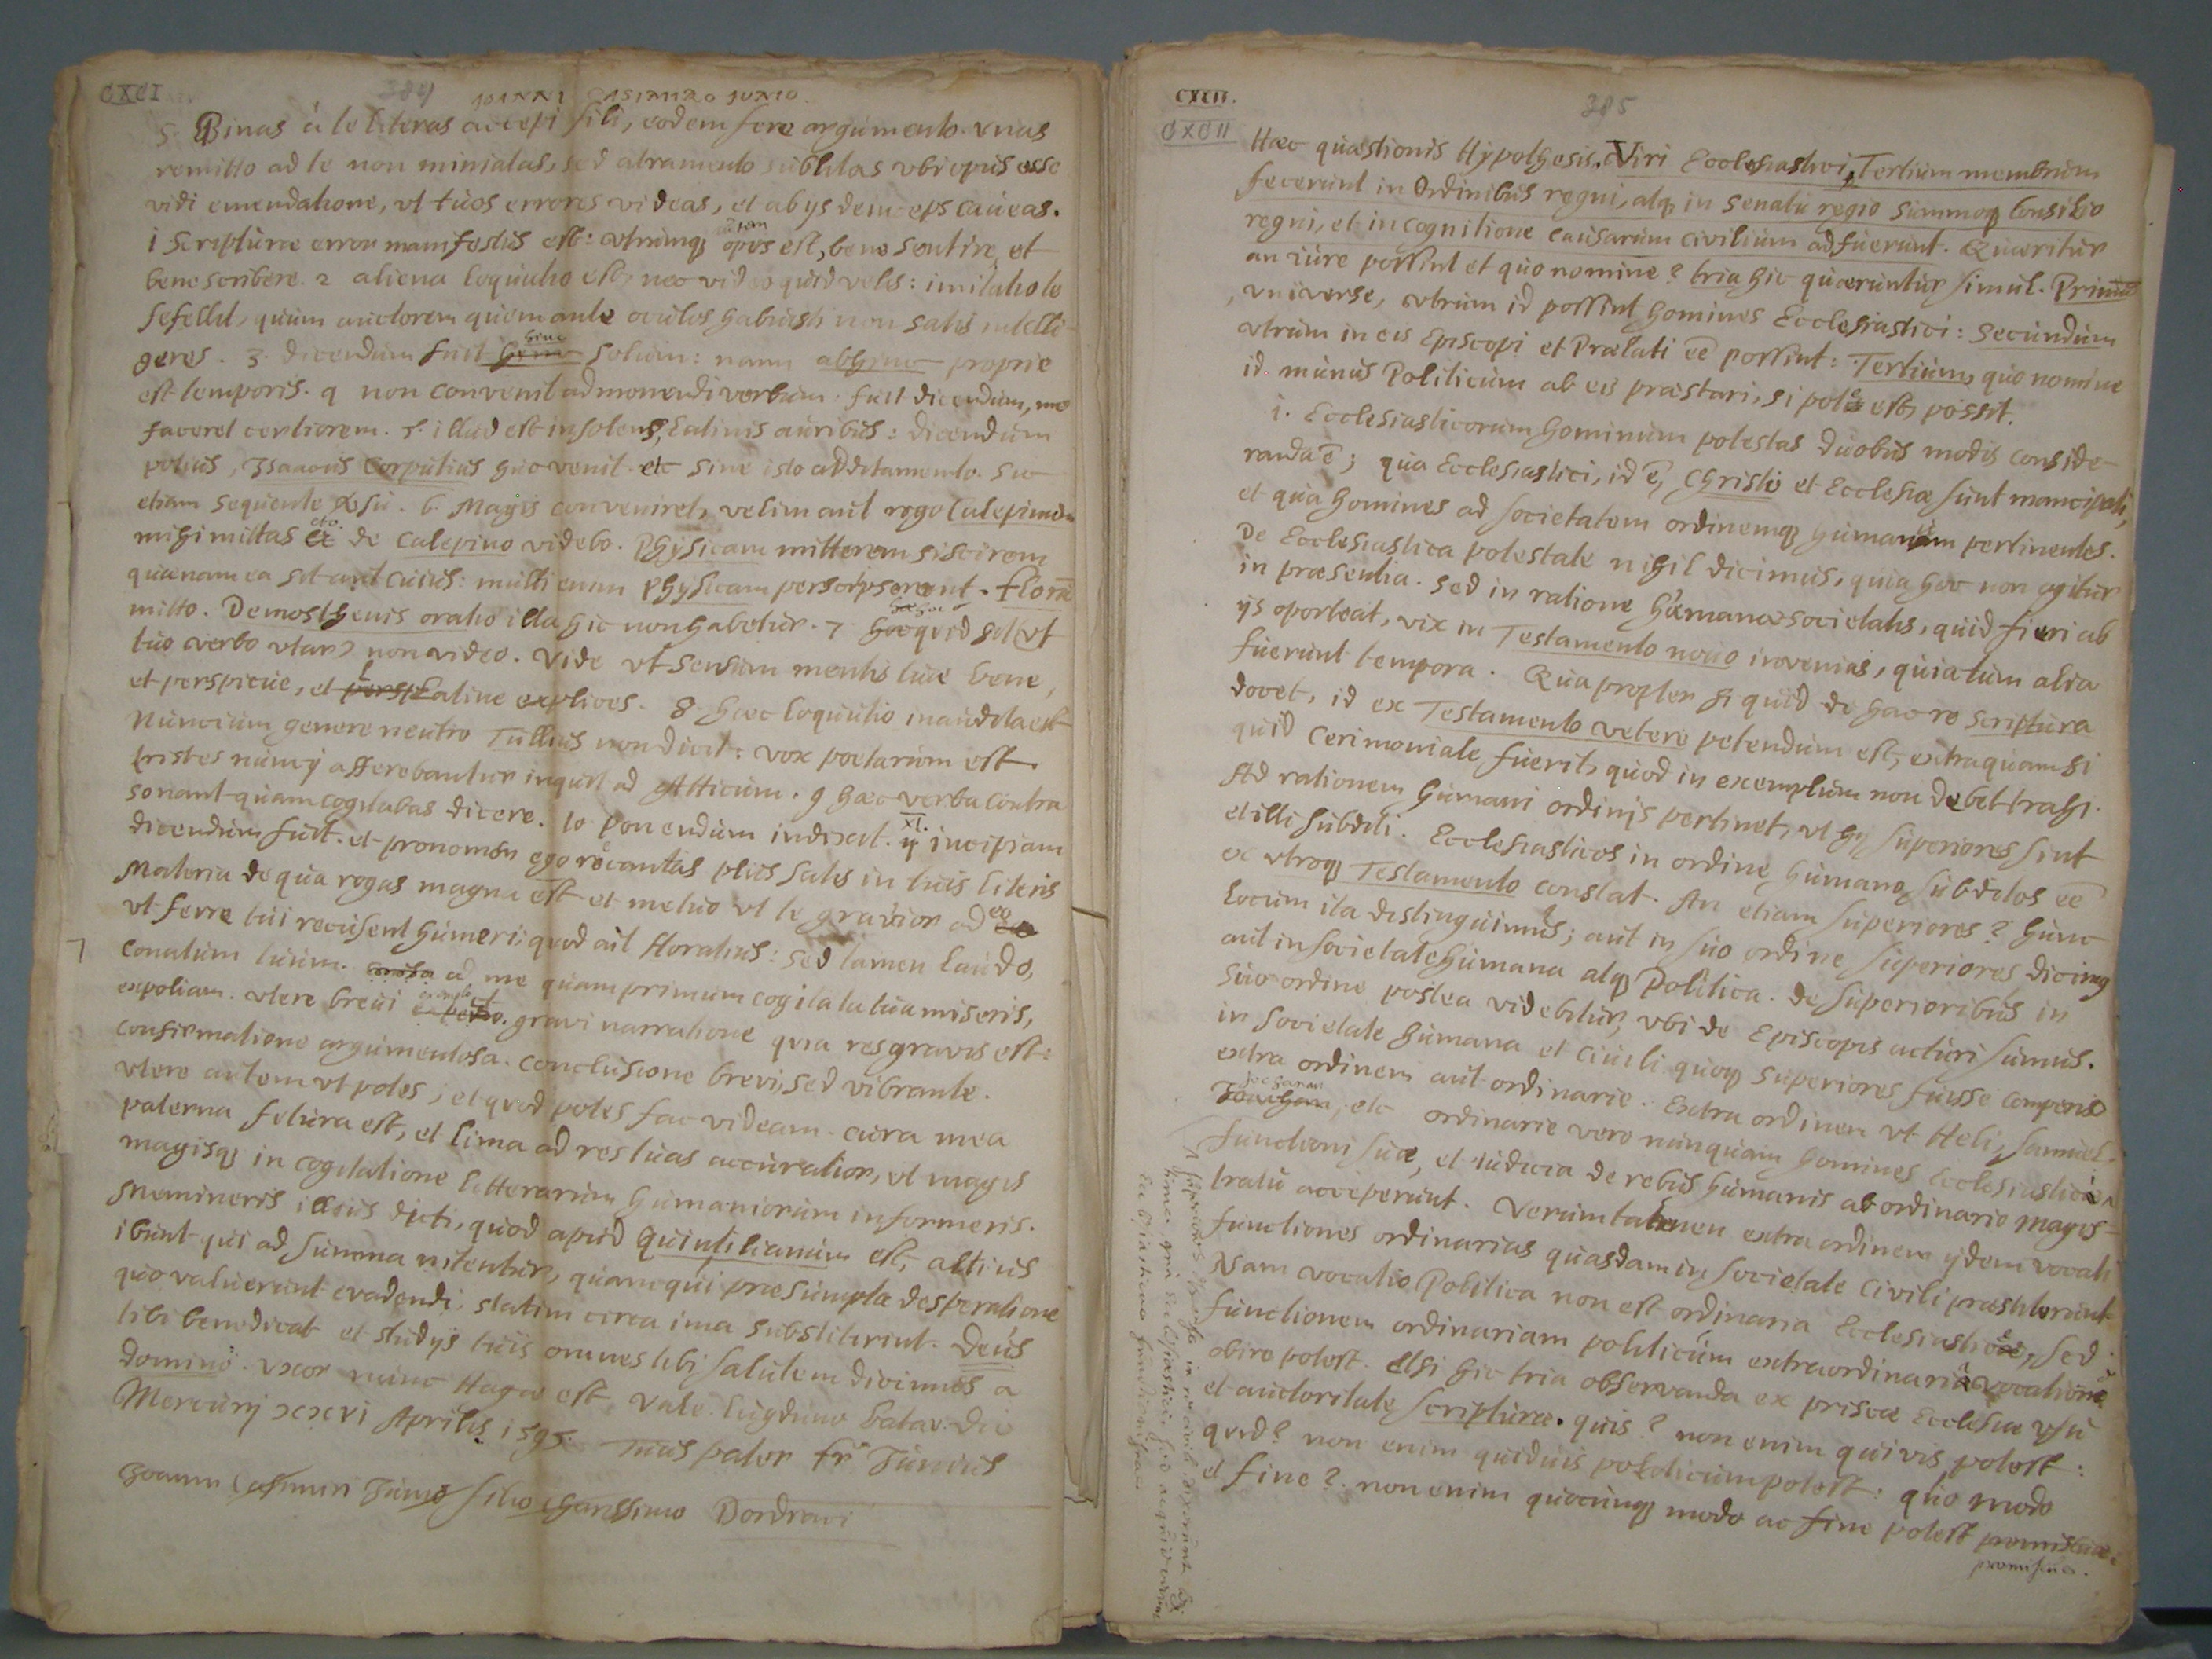 CXCI
384
IOANNI CASIMIRO IUNIO.
S. Binas à te literas accepi fili, eodem fere argumento. vnas
remitto ad te non miniatas, sed atramento sublitas vbi opus esse
vidi emendatione, vt tuos errores videas, et ab ijs deinceps caueas.
1 Scripturae error manifestus est: vtrumq; autem opus est, bene sentire, et
bene scribere. 2 aliena loquutio est, nec video quid velis: imitatio te
fefellit, quum auctorem quem ante oculos habuisti non satis intelli-
geres. 3. dicendum fuit hinc solum: nam abhinc proprie
est temporis. 4 non convenit admonendi verbum. fuit dicendum, me
faceret certiorem. 5. illud est insolens Latinis auribus: dicendum
potius, Isaacus Corputius huc venit etc sine isto additamento. sic
etiam sequente versu. 6. Magis conveniret, velim aut rogo Calepinum
mihi mittas etc. de Calepino videbo. Physicam mitterem si scirem
quaenam ea sit aut cuius: multi enim Physicam perscripserunt. Florum
mitto. Demosthenis oratio illa hic non habetur. 7 quid sit (vt
tuo verbo vtar) non video. Vide vt sensum mentis tuae bene,
et perspicue, et Latine explices. 8. haec loquutio inaudita est
Nuncium genere neutro Tullius non dicit: vox poetarum est.
tristes nuncij afferebantur inquit ad Atticum. 9 haec verba contra
sonant quam cogitabas dicere. 10 ponendum indixit. XI. incipiam
dicendum fuit. et pronomen ego recantas plus satis in tuis literis
Materia de qua rogas magna est et metuo vt te gravior ad eo
vt ferre tui recusent humeri quod ait Horatius: sed tamen laudo,
conatum tuum. ad me quamprimum cogitata tua miseris,
expoliam. vtere brevi exemplo. gravi narratione quia res gravis est:
confirmatione argumentosa. conclusione brevi, sed vibrante.
vtere autem vt potes, et quod potes fac videam. cura mea
paterna futura est, et lima ad res tuas accuratior, vt magis
magisq; in cogitatione litterarum humaniorum informeris.
Memineris illius dicti, quod apud Quintilianum est, altius
ibunt qui ad summa nitentur, quam qui praesumpta desperatione
quo valuerunt evadendi, statim circa ima substiterint. Deus
tibi benedicat et studijs tuis omnes tibi salutem dicimus a
domino. vxor nunc Hagae est. Vale. Lugduno batav. die
Mercurij XXVI Aprilis 1595. Tuus pater Fr. Iunius
Joanni Casimiri Junio filio charissimo Dordraci
CXCII.
CXCII
385
Haec quaestionis Hypothesis. Viri Ecclesiastici Tertium membrum
fecerunt in Ordinibus regni, atq; in senatu regio summoq; Consilio
regni, et in cognitione causarum civilium adfuerunt. Quaeritur
an iure possint et quo nomine? tria hic quaeruntur simul. Primum
vniverse, vtrum id possint homines Ecclesiastici: secundum
vtrum in eis Episcopi et Praelati eē possint: Tertium, quo nomine
id munus Politicum ab eis praestari, si potis est, possit.
1. Ecclesiasticorum hominum potestas duobus modis conside-
randa ē; qua Ecclesiastici, id ē, Christi et Ecclesiae sunt mancipati,
et qua homines ad societatem ordinemq; humanum pertinentes.
De Ecclesiastica potestate nihil dicimus, quia hoc non agitur
in praesentia. sed in ratione humanae societatis, quid fieri ab
ijs oporteat, vix in Testamento nouo invenias, quia tum alia
fuerunt tempora. Quapropter si quid de hac re scriptura
docet, id ex Testamento vetere petendum est, extraquam si
quid cerimoniale fuerit, quod in exemplum non debet trahi.
Ad rationem humani ordinis pertinet, vt hij superiores sint
et illi subditi. Ecclesiasticos in ordine humano subditos eē
ex vtroq; Testamento constat. An etiam superiores? hunc
locum ita distinguimus; aut in suo ordine superiores dicimus
aut in societate humana atq; Politica. de superioribus in
suo ordine postea videbitur, vbi de Episcopis acturi sumus.
in societate humana et civili quoq; superiores fuisse comperio
extra ordinem aut ordinarie. Extra ordinem vt Heli, Samuel
etc ordinarie vero nunquam homines Ecclesiastici
functioni suae, et iudicia de rebus humanis ab ordinario magis-
tratu acceperunt. Verumtamen extra ordinem ijdem vocati
functiones ordinarias quasdam in societate civili praestiterunt
Nam vocatio Politica non est ordinaria Ecclesiastico, sed
functionem ordinariam politicam extraordinaria vocatione
obire potest. Etsi hic tria observanda ex priscae Ecclesiae vsu
et auctoritate scripturae. quis? non enim quivis potest:
quid? non enim quiduis politicum potest: quo modo
et fine? non enim quocunq; modo ac fine potest promiscue.
promiscue.